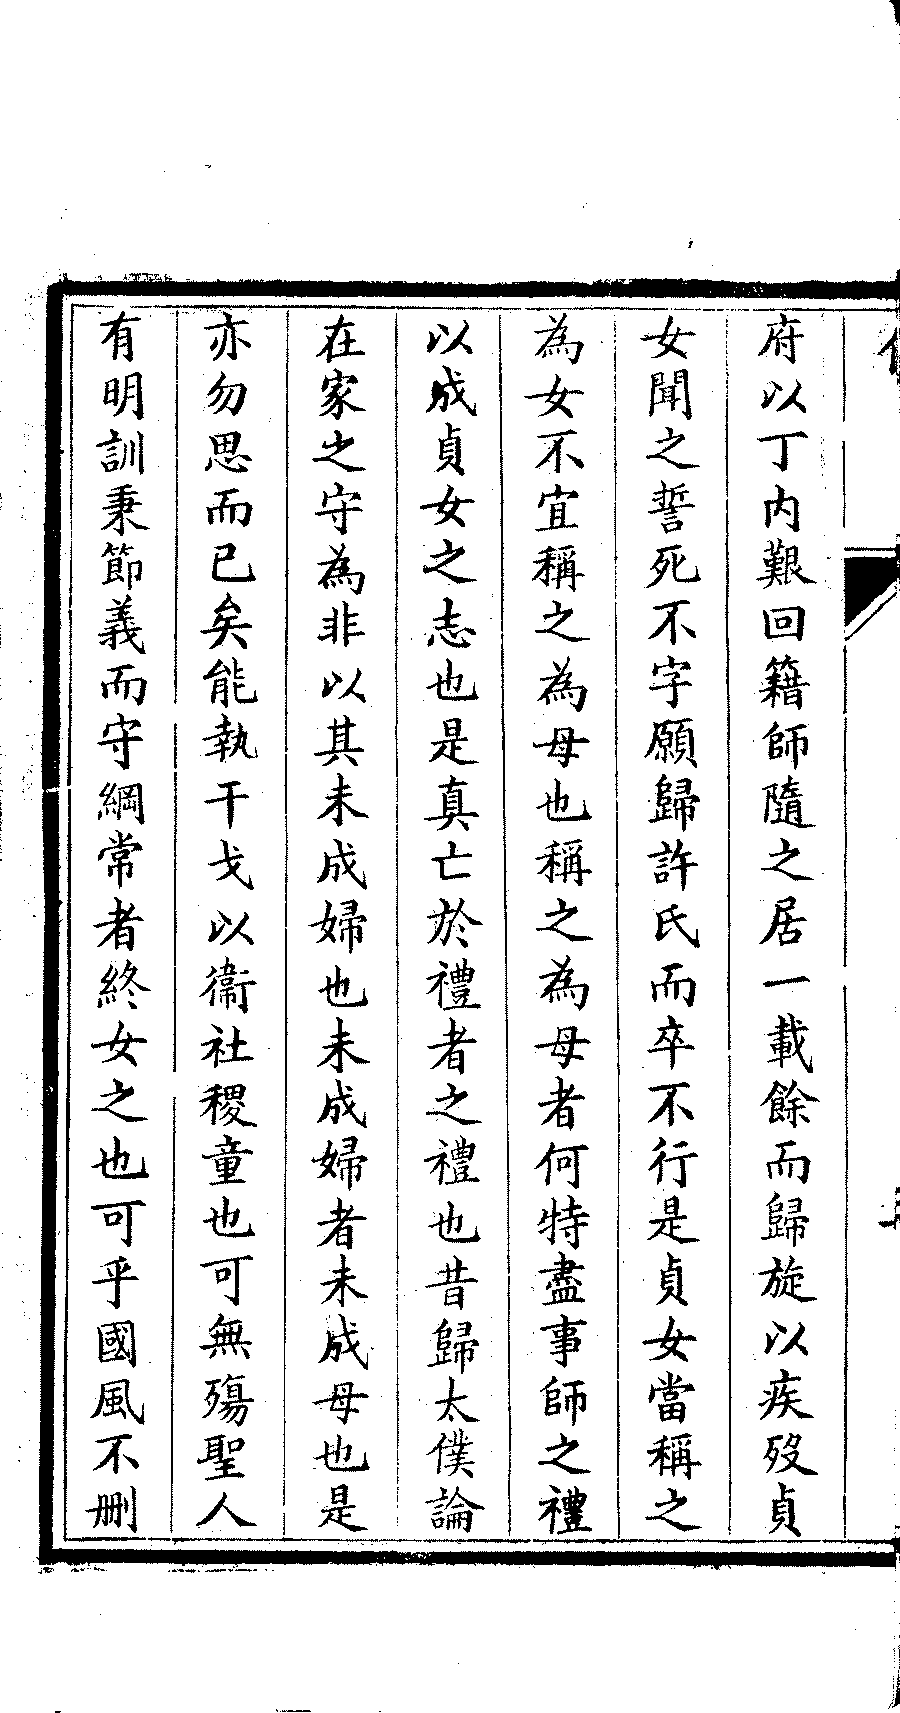 府以丁内艱回籍師隨之居一載餘而歸旋以疾歿貞
女聞之誓死不字願歸許氏而卒不行是貞女當稱之
為女不宜稱之為母也稱之為母者何特盡事師之禮
以成貞女之志也是真亡於禮者之禮也昔歸太僕論
在家之守為非以其未成婦也未成婦者未成母也是
亦勿思而已矣能執干戈以衞社稷童也可無殤聖人
有明訓秉節義而守綱常者終女之也可乎國風不删